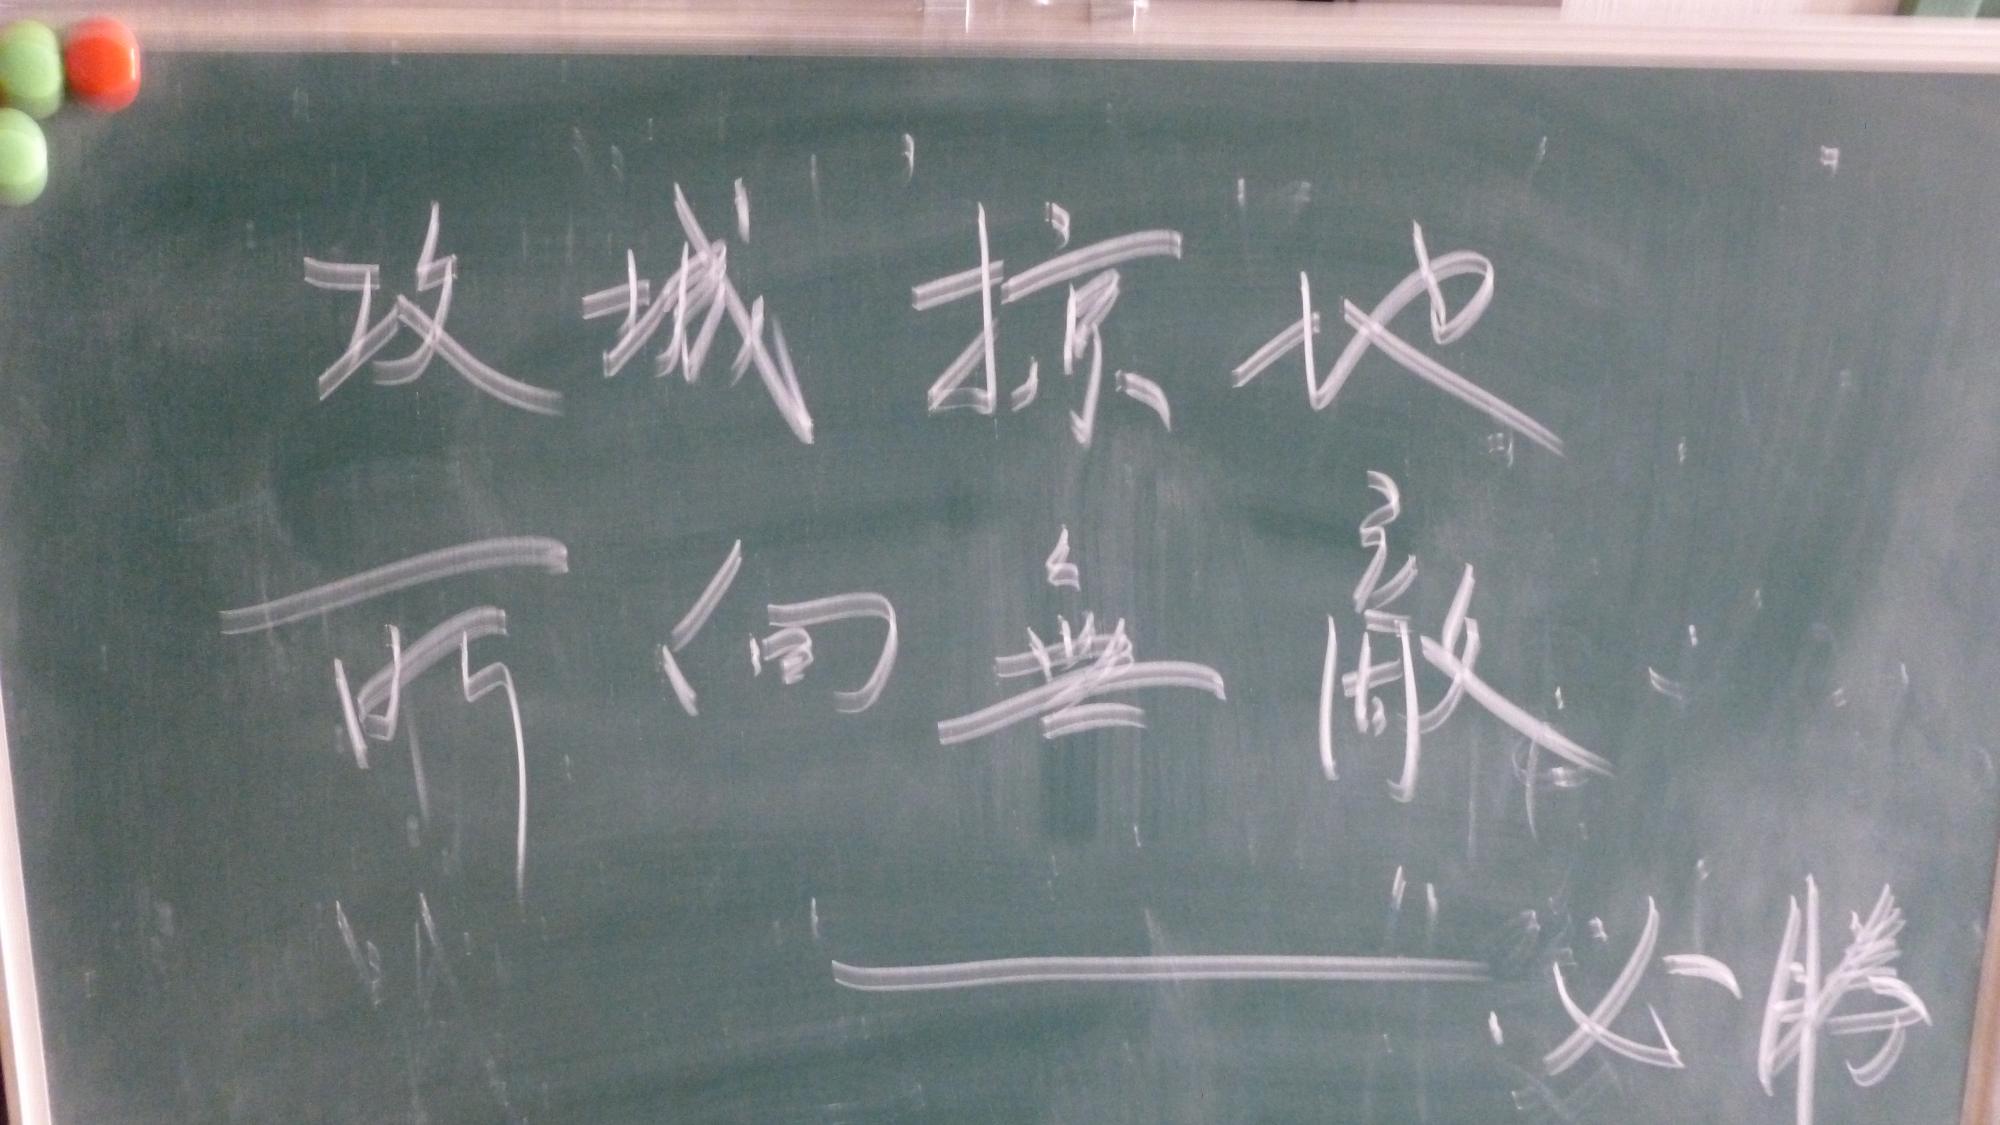 攻城掠地
所向無敵
——必勝